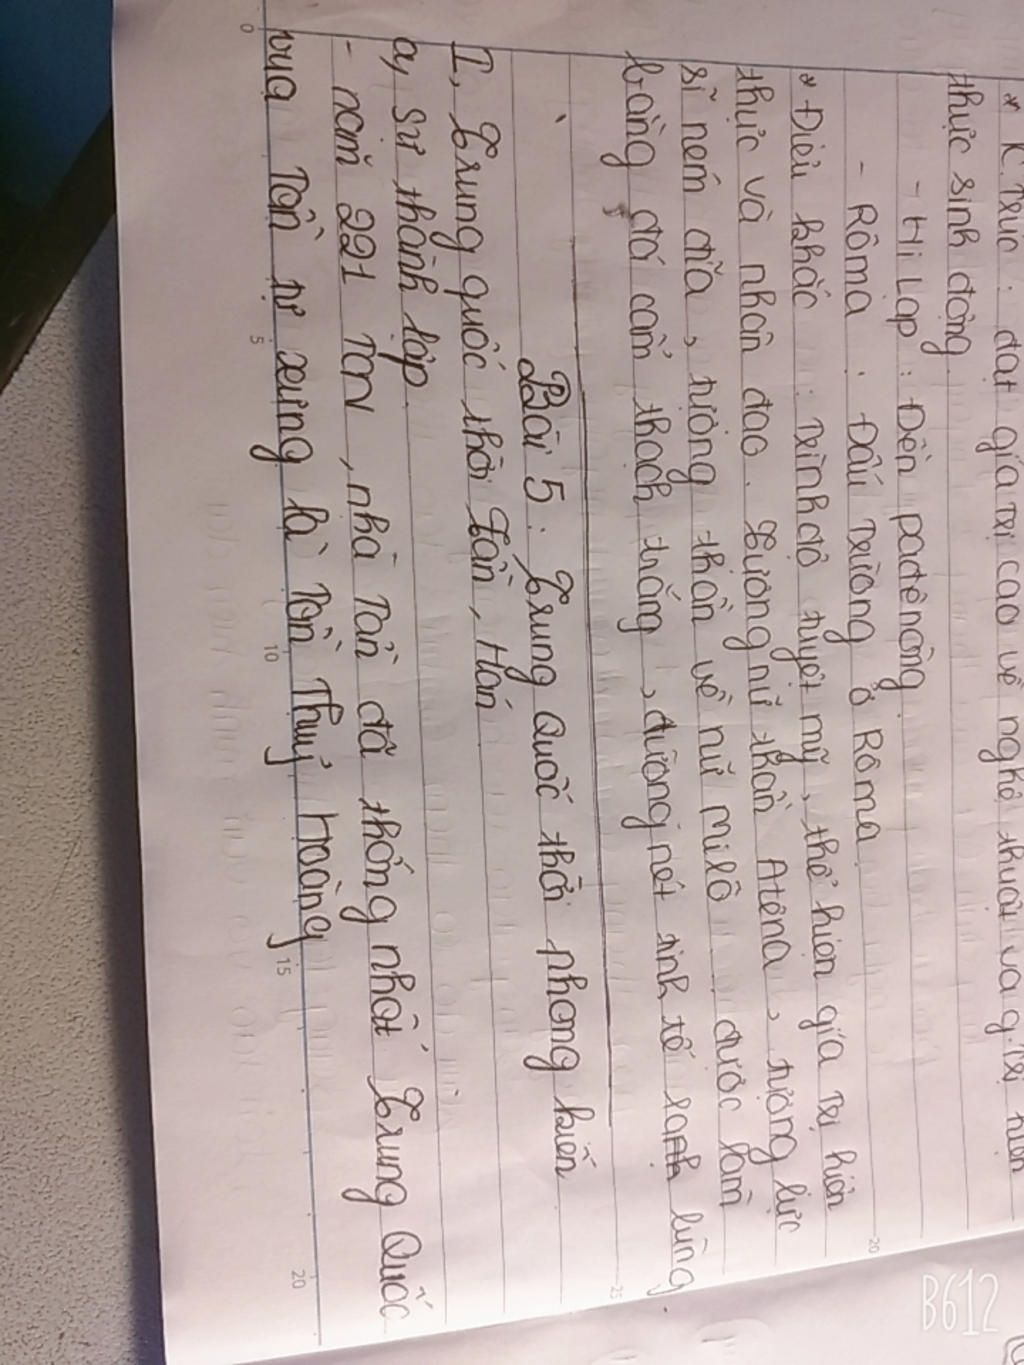 * K.trúc : đạt giá trị cao về nghệ thuật và g.trị hiện
thực sinh động.
- Hi Lạp : Đền pađênông.
- Rôma : Đấu trường ở Rôma
* Điêu khắc : trình độ tuyệt mỹ, thể hiện giá trị hiện
thực và nhân đạo. Tượng nữ thần Atêna, tượng lực
sĩ ném đĩa, tượng thần vệ nữ milô được làm
bằng đá cẩm thạch trắng, đường nét tinh tế lùng.
Bài 5 : Trung Quốc thời phong kiến
I, Trung quốc thời Tần, Hán
a, Sự thành lập.
- năm 221 TCN, nhà Tần đã thống nhất Trung Quốc
vua Tần tự xưng là Tần Thuỷ Hoàng
0
5
10
15
20
20
25
B612